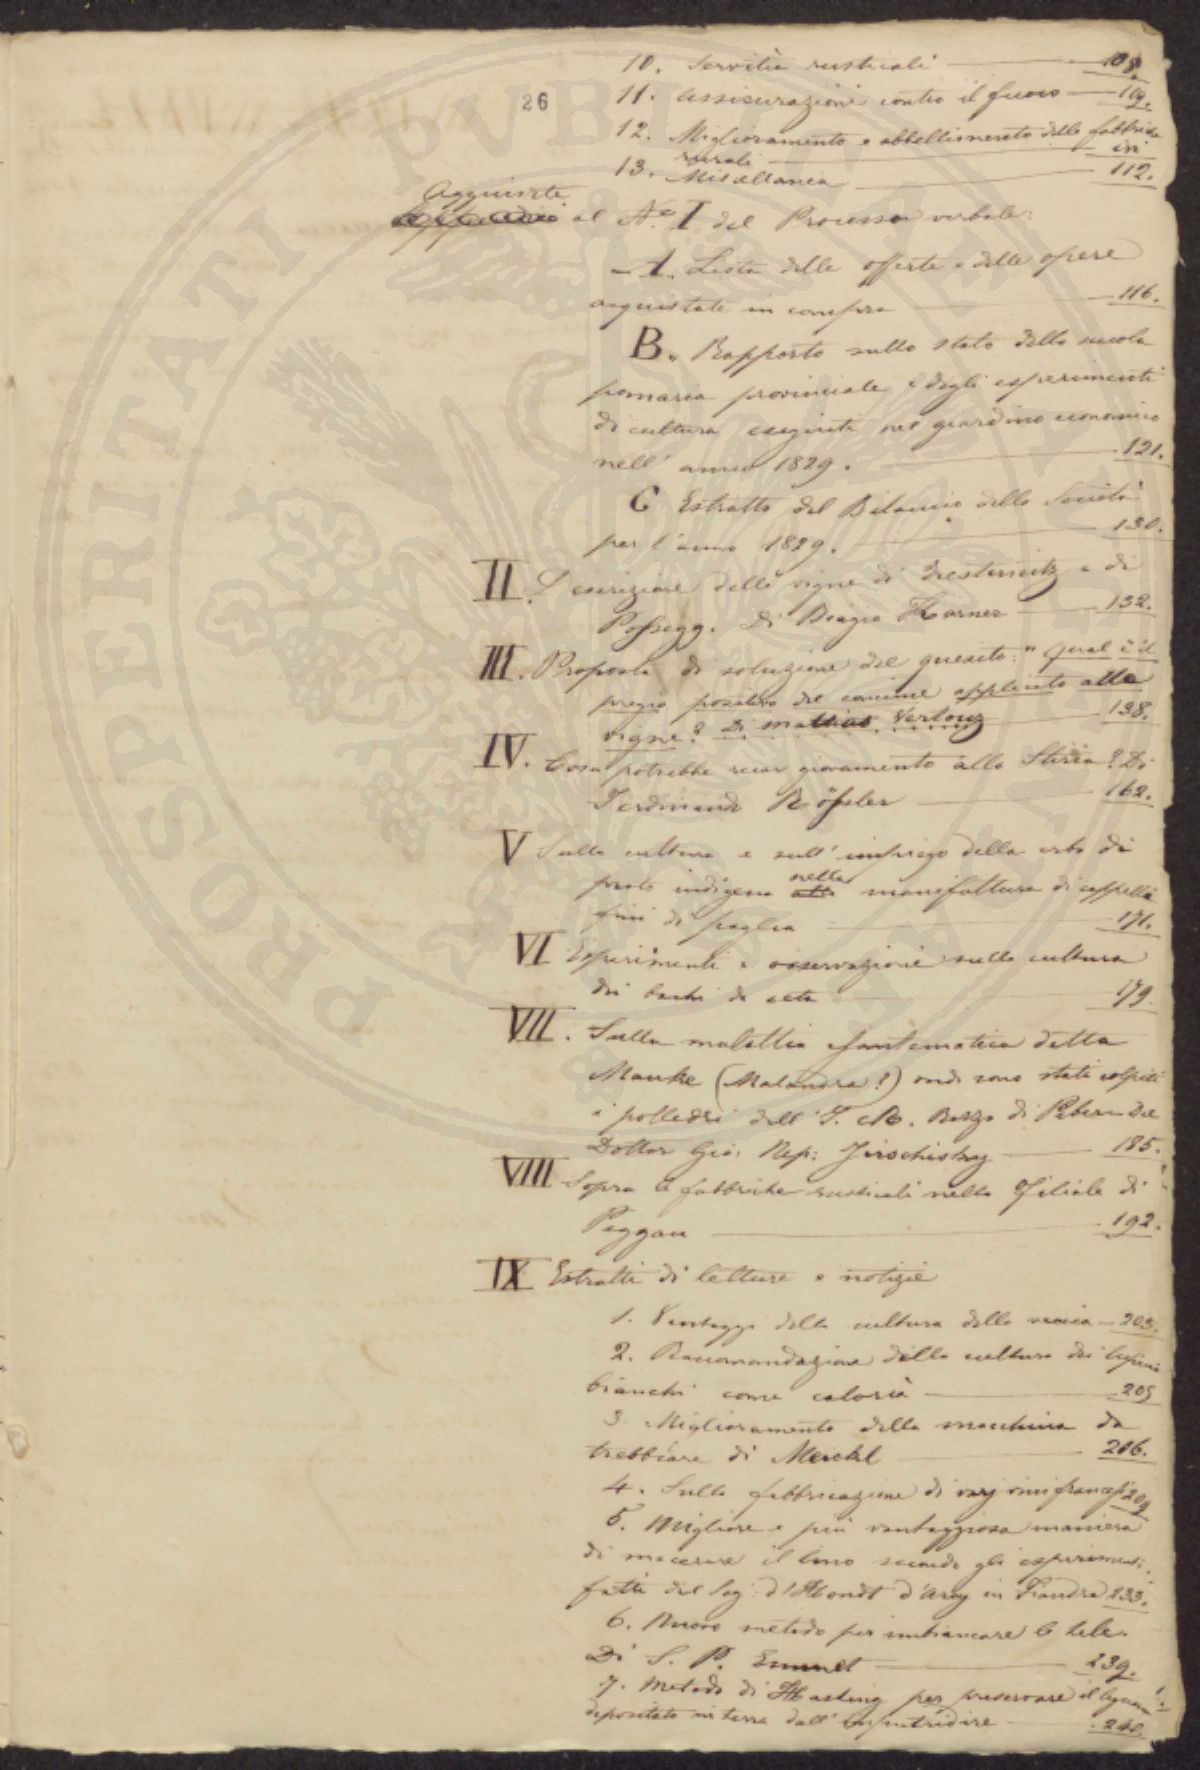 10. Servitù rusticali 108.
26
11. Assicurazioni contro il fuoco 109.
12. Miglioramento e abbellimento delle fabbriche
rurali ivi
13. Miscellanea 112.
Aggiunte
al N.o I del Processo verbale:
A. Lista delle offerte e delle opere
acquistate in compra 116.
B. Rapporto sullo stato della scuola
pomaria provinciale e degli esperimenti
di cultura eseguiti nel giardino economico
nell' anno 1829. 121.
C Estratto del Bilancio della Società
per l'anno 1829. 130.
II. Descrizione delle vigne di e di
Possegg. Di Biagio Karner 132.
III. Proposta di soluzione del quesito: "Qual è il
pregio positivo del concime applicato alle
vigne? Di Mathias Vertouz 138.
IV. Cosa potrebbe recar giovamento alla Stiria? Di
Ferdinand Rößler 162.
V Sulla cultura e sull' impiego della erba di
prato indigena nella manifattura di cappelli
fini di paglia 171.
VI Esperimenti e osservazioni sulla cultura
dei bachi da seta 179.
VII. Sulla malattia esantematica detta
Mauke (Malandra?) onde sono stati colpiti
i polledri dell' I. R. Razza di Piber. Del
Dottor Gio: Nep: 185.
VIII Sopra le fabbriche rusticali nella Filiale di
Peggau 192.
IX Estratti di letture e notizie
1. Vantaggi della cultura della veccia 203.
2. Raccomandazione della cultura dei lupini
bianchi come caloria 205
3. Miglioramento della macchina da
trebbiare di Merckl 206.
4. Sulla fabbricazione di varj vini francesi 209
5. Migliore e più vantaggiosa maniera
di macerare il lino secondo gli esperimenti
fatti dal Sig. d'Hondt d'Arcy in Fiandra 233.
6. Nuovo metodo per imbiancare le tele.
Di S. P. Emmet 239.
7. Metodo di per preservare il legname
depositato in terra dall' imputridire 240.
PROSPERITATI PUBLICAE